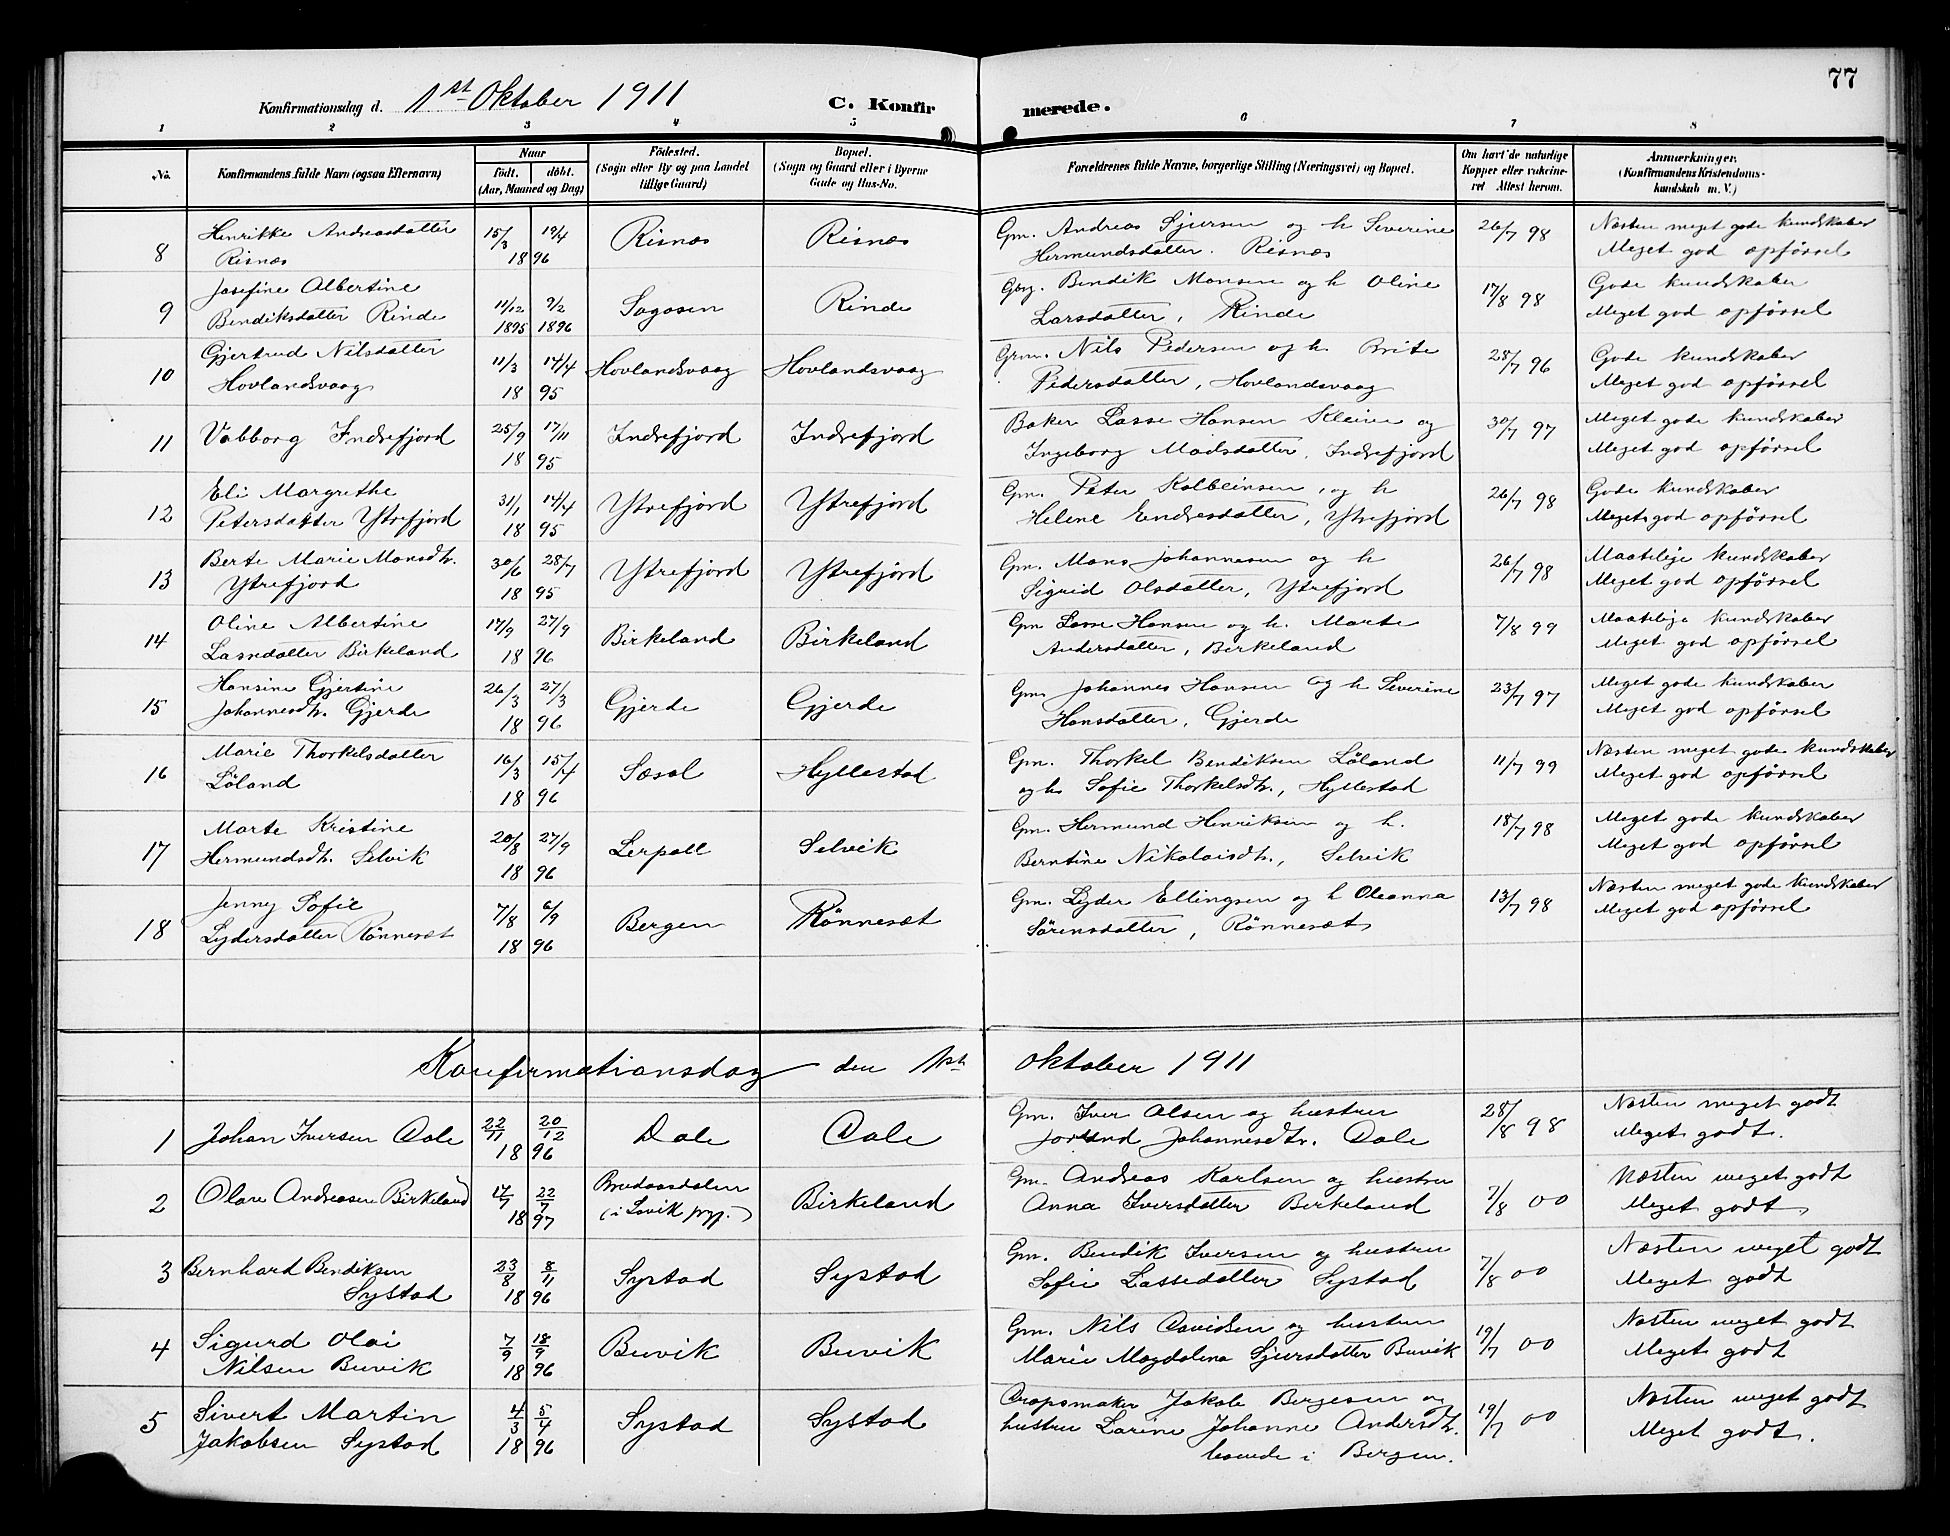 77
Konfirmationsdag d. 1st Oktober 1911 C. Konfirmerede.
1 2 3 4 5 6 7 8
No. Konfirmandens fulde Navn (ogsaa Efternavn) Naar født. døbt. (Aar, Maaned og Dag) Fødested. (Sogn eller By og paa Landet tillige Gaard) Bopæl. (Sogn og Gaard eller i Byerne Gade og Hus-No. Forældrenes fulde Navne, borgerlige Stilling (Næringsvei) og Bopæl. Om havt de naturlige Kopper eller vakcineret Attest herom. Anmærkninger. (Konfirmandens Kristendomskundskab m. V.)
8 Henrikke Andreasdatter 15/3 19/4 Risnæs Risnæs Gm. Andreas Sjursen og h Severine 26/7 98 Næsten meget gode kundskaber
Risnæs 18 96 Hermundsdatter. Risnæs Meget god opførsel
9 Josefine Albertine 11/12 9/2 Sagosen Rinde Gbrg. Bendik Monsen og h Oline 17/8 98 Gode kundskaber
Bendiksdatter Rinde 1895 1896 Larsdatter, Rinde Meget god opførsel
10 Gjertrud Nilsdatter 11/3 14/4 Hovlandsvaag Hovlandsvaag Grm. Nils Pedersen og h. Brite 28/7 96 Gode kundskaber
Hovlandsvaag 18 95 Pedersdatter, Hovlandsvaag Meget god opførsel
11 Valborg Indrefjord 25/9 17/11 Indrefjord Indrefjord Baker Lasse Hansen Kleiva og 30/7 97 Meget gode kundskaber
18 95 Ingeborg Madsdatter, Indrefjord Meget god opførsel
12 Eli Margrethe 31/1 14/4 Ytrefjord Ytrefjord Gm. Peter Kolbeinsen, og h 26/7 98 Gode kundskaber
Petersdatter Ytrefjord 18 95 Helene Endresdatter, Ytrefjord Meget god opførsel
13 Berte Marie Monsdtr. 30/6 28/7 Ytrefjord Ytrefjord Gm. Mons Johannesen og h 26/7 98 Maatelige kundskaber
Ytrefjord 18 95 Sigrid Olsdatter, Ytrefjord Meget god opførsel
14 Oline Albertine 17/9 27/9 Birkeland Birkeland Gm Lasse Hansen og h. Marte 7/8 99 Maatelige kundskaber
Lassedatter Birkeland 18 96 Andersdatter, Birkeland Meget god opførsel
15 Hansine Gjertine 26/3 27/3 Gjerde Gjerde Gm. Johannes Hansen og h Severine 23/7 97 Meget gode kundskaber
Johannesdtr. Gjerde 18 96 Hansdatter, Gjerde Meget god opførsel
16 Marie Thorkelsdatter 16/3 15/4 Sæsol Hyllestad Gm. Thorkel Bendiksen Løland 11/7 99 Næsten meget gode kundskaber
Løland 18 96 og h Sofie Thorkelsdtr., Hyllestad Meget god opførsel
17 Marte Kristine 20/8 27/9 Lerpoll Selvik Gm. Hermund Henriksen og h. 18/7 98 Meget gode kundskaber
Hermundsdtr. Selvik 18 96 Berntine Nikolaisdtr., Selvik Meget god opførsel
18 Jenny Sofie 7/8 6/9 Bergen Rønneset Gm. Lyder Ellingsen og h Oleanna 13/7 98 Næsten meget gode kundskaber
Lydersdatter Rønneset 18 96 Sørensdatter, Rønneset Meget god opførsel
Konfirmationsdag den 1st oktober 1911
1 Johan Iversen Dale 22/11 20/12 Dale Dale Gm. Iver Olsen og hustru 28/8 98 Næsten meget godt
18 96 Jorund Johannesdtr. Dale Meget godt.
2 Olav Andreasen Birkeland 17/7 22/7 Birkeland Gm. Andreas Karlsen og hustru 7/8 00 Næsten meget godt
18 97 (i Lavik pgj.) Anna Iversdatter Birkeland Meget godt
3 Bernhard Bendiksen 23/8 8/11 Systad Systad Gm. Bendik Iversen og hustru 7/8 00 Næsten meget godt
Systad 18 96 Sofie Lassedatter Systad Meget godt
4 Sigurd Olai 7/9 18/9 Buvik Buvik Gm. Nils Davidsen og hustru 19/7 00 Næsten meget godt
Nilsen Buvik 18 96 Marie Magdalena Sjursdatter Buvik Meget godt
5 Sivert Martin 4/3 5/4 Systad Systad Dropsmaker Jakob Bergesen og 19/7 00 Næsten meget godt
Jakobsen Systad 18 96 hustru Larine Johanne Andersdtr. Meget godt.
boende i Bergen.